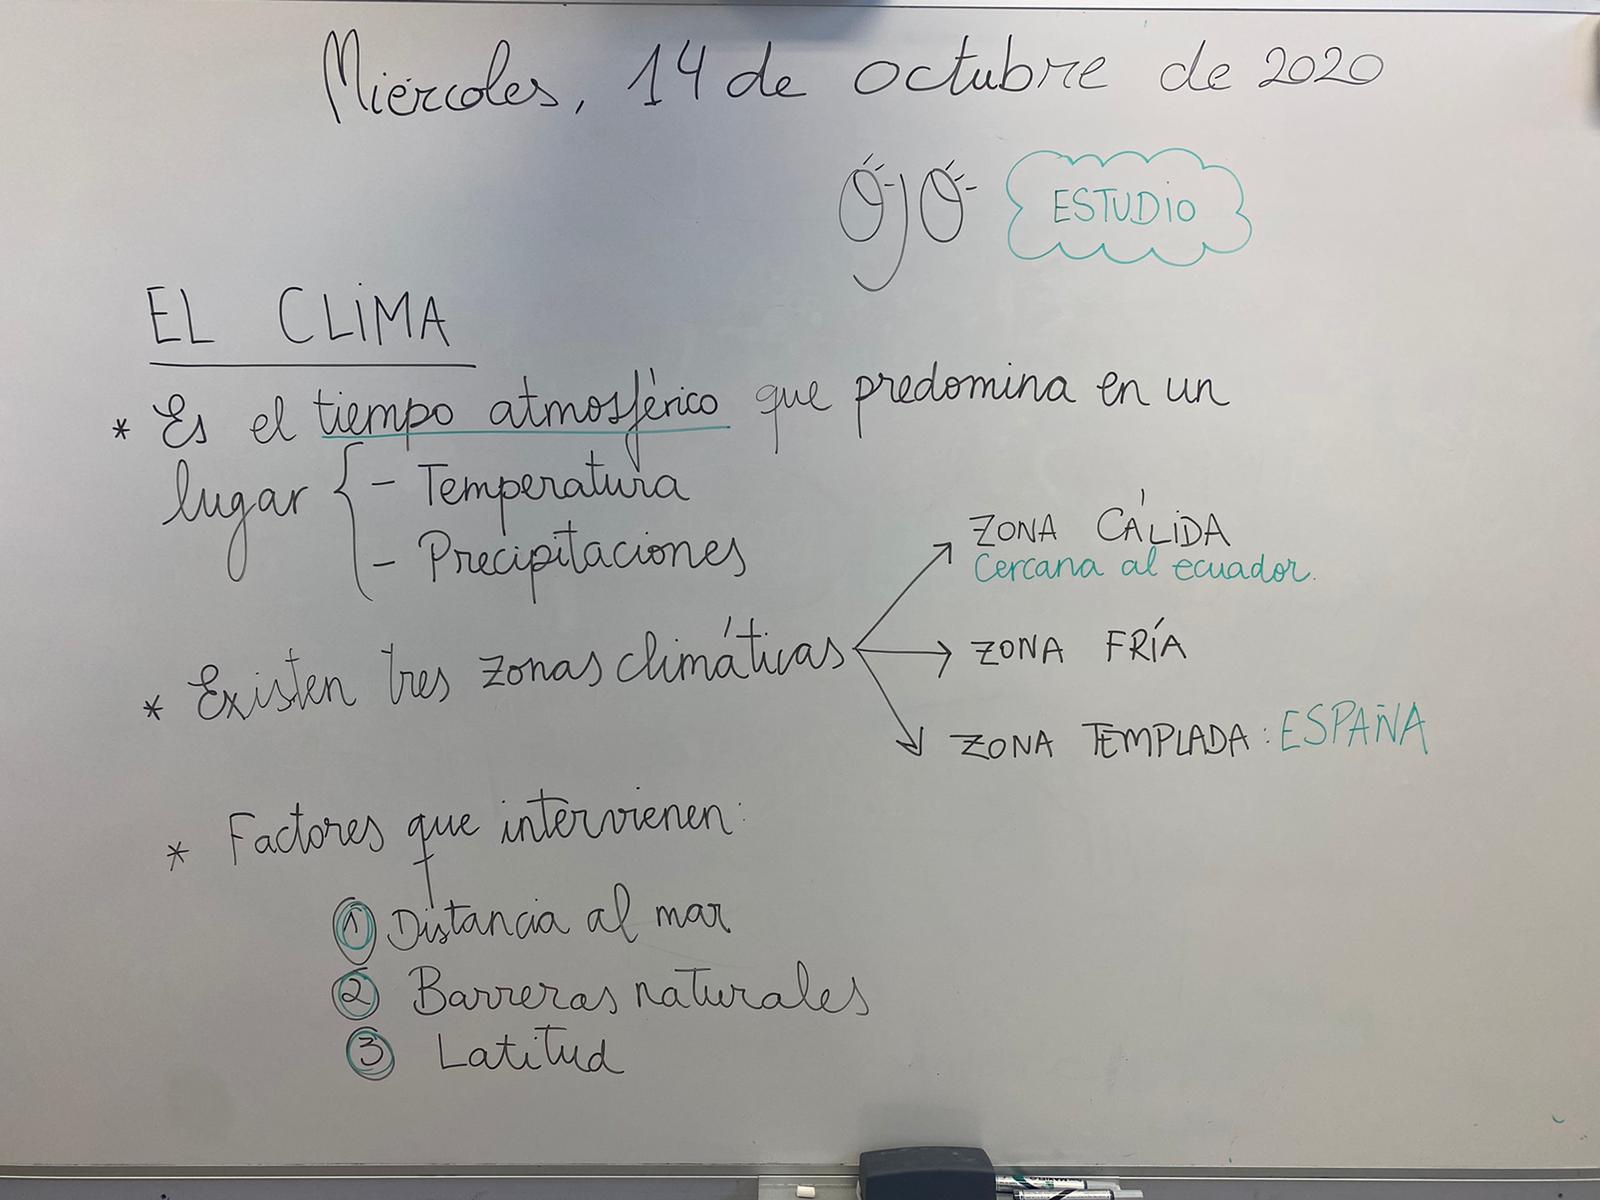 Miércoles, 14 de octubre de 2020
OjO ESTUDIO
EL CLIMA
* Es el tiempo atmosférico que predomina en un
lugar { - Temperatura
- Precipitaciones
* Existen tres zonas climáticas
ZONA CÁLIDA
Cercana al ecuador.
ZONA FRÍA
ZONA TEMPLADA: ESPAÑA
* Factores que intervienen:
1 Distancia al mar
2 Barreras naturales
3 Latitud